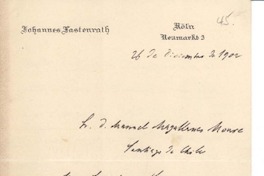 45.
Johannes Fastenrath
Köln
Neumarkt 3
26 de diciembre de 1902
S. D. Manuel Magallanes Moure
Santiago de Chile